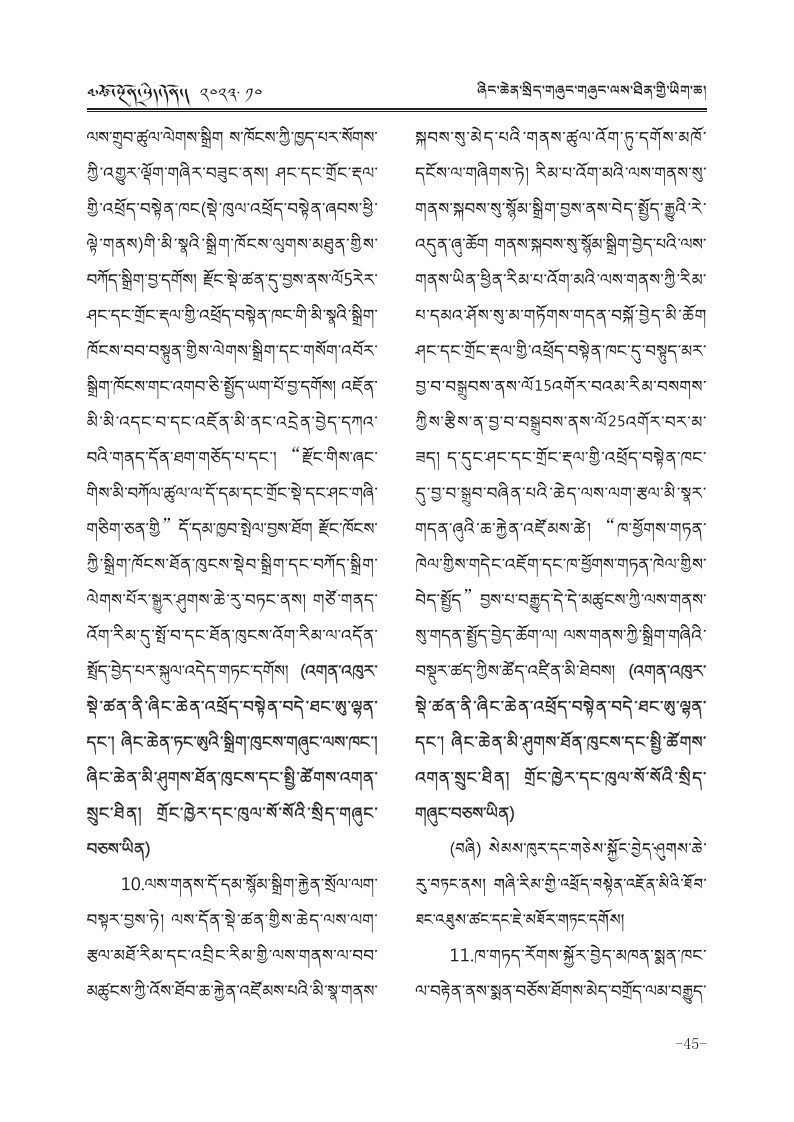 མཚོ་སྔོན་སྲིད་གཞུང་། ༢༠༢༣·༡༠
ཞིང་ཆེན་སྲིད་གཞུང་གཞུང་ལས་ཐིན་གྱི་ཡིག་ཆ།
ལས་གྲྭབ་ཚུལ་ལེགས་སྒྲིག ས་ཁོངས་ཀྱི་ཁྱད་པར་སོགས་
ཀྱི་འགྱུར་ལྡོག་གཞིར་བཟུང་ནས། ཤང་དང་གྲོང་རྡལ་
གྱི་འཕྲོད་བསྟེན་ཁང(སྡེ་ཁུལ་འཕྲོད་བསྟེན་ཞབས་ཕྱི་
ལྟེ་གནས)གི་མི་སྣའི་སྒྲིག་ཁོངས་ལུགས་མཐུན་གྱིས་
བཀོད་སྒྲིག་བྱ་དགོས། རྫོང་སྡེ་ཚན་དུ་བྱས་ནས་ལོ5རེར་
ཤང་དང་གྲོང་རྡལ་གྱི་འཕྲོད་བསྟེན་ཁང་གི་མི་སྣའི་སྒྲིག་
ཁོངས་བབ་བསྟུན་གྱིས་ལེགས་སྒྲིག་དང་གསོག་འབོར་
སྒྲིག་ཁོངས་གང་འགབ་ཅི་སྤྱོད་ཡག་པོ་བྱ་དགོས། འཛོན་
མི་མི་འདང་བ་དང་འཛོན་མི་ནང་འདྲེན་བྱེད་དཀའ་
བའི་གནད་དོན་ཐག་གཅོད་པ་དང་། “རྫོང་གིས་ཞང་
གིས་མི་བཀོལ་ཚུལ་ལ་དོ་དམ་དང་གྲོང་སྡེ་དང་ཤང་གཞི་
གཅིག་ཅན་གྱི” དོ་དམ་ཁྱབ་སྤེལ་བྱས་ཐོག རྫོང་ཁོངས་
ཀྱི་སྒྲིག་ཁོངས་ཐོན་ཁུངས་སྡེབ་སྒྲིག་དང་བཀོད་སྒྲིག་
ལེགས་པོར་སྒྱུར་ཤུགས་ཆེ་རུ་བཏང་ནས། གཙོ་གནད་
འོག་རིམ་དུ་སྤོ་བ་དང་ཐོན་ཁུངས་འོག་རིམ་ལ་འདོན་
སྤྲོད་བྱེད་པར་སྐུལ་འདེད་གཏང་དགོས། (འགན་འཁུར་
སྡེ་ཚན་ནི་ཞིང་ཆེན་འཕྲོད་བསྟེན་བདེ་ཐང་ཨུ་ལྷན་
དང་། ཞིང་ཆེན་ཏང་ཨུའི་སྒྲིག་ཁུངས་གཞུང་ལས་ཁང་།
ཞིང་ཆེན་མི་ཤུགས་ཐོན་ཁུངས་དང་སྤྱི་ཚོགས་འགན་
སྲུང་ཐིན། གྲོང་ཁྱེར་དང་ཁུལ་སོ་སོའི་སྲིད་གཞུང་
བཅས་ཡིན)
10.ལས་གནས་དོ་དམ་སྙོམ་སྒྲིག་རྐྱེན་སྲོལ་ལག་
བསྟར་བྱས་ཏེ། ལས་དོན་སྡེ་ཚན་གྱིས་ཆེད་ལས་ལག་
རྩལ་མཐོ་རིམ་དང་འབྲིང་རིམ་གྱི་ལས་གནས་ལ་བབ་
མཚུངས་ཀྱི་འོས་ཐོབ་ཆ་རྐྱེན་འཛོམས་པའི་མི་སྣ་གནས་
སྐབས་སུ་མེད་པའི་གནས་ཚུལ་འོག་ཏུ་དགོས་མཁོ་
དངོས་ལ་གཞིགས་ཏེ། རིམ་པ་འོག་མའི་ལས་གནས་སུ་
གནས་སྐབས་སུ་སྙོམ་སྒྲིག་བྱས་ནས་བེད་སྤྱོད་རྒྱུའི་རེ་
འདུན་ཞུ་ཆོག གནས་སྐབས་སུ་སྙོམ་སྒྲིག་བྱེད་པའི་ལས་
གནས་ཡིན་ཕྱིན་རིམ་པ་འོག་མའི་ལས་གནས་ཀྱི་རིམ་
པ་དམའ་ཤོས་སུ་མ་གཏོགས་གདན་བསྐོ་བྱེད་མི་ཆོག
ཤང་དང་གྲོང་རྡལ་གྱི་འཕྲོད་བསྟེན་ཁང་དུ་བསྟུད་མར་
བྱ་བ་བསྒྲུབས་ནས་ལོ15འགོར་བའམ་རིམ་བསགས་
ཀྱིས་རྩིས་ན་བྱ་བ་བསྒྲུབས་ནས་ལོ25འགོར་བར་མ་
ཟད། ད་དུང་ཤང་དང་གྲོང་རྡལ་གྱི་འཕྲོད་བསྟེན་ཁང་
དུ་བྱ་བ་སྒྲུབ་བཞིན་པའི་ཆེད་ལས་ལག་རྩལ་མི་སྣར་
གདན་ཞུའི་ཆ་རྐྱེན་འཛོམས་ཚེ། “ཁ་ཕྱོགས་གཏན་
ཁེལ་གྱིས་གདེང་འཇོག་དང་ཁ་ཕྱོགས་གཏན་ཁེལ་གྱིས་
བེད་སྤྱོད” བྱས་པ་བརྒྱུད་དེ་དེ་མཚུངས་ཀྱི་ལས་གནས་
སུ་གདན་སྤྱོད་བྱེད་ཆོག་ལ། ལས་གནས་ཀྱི་སྒྲིག་གཞིའི་
བསྡུར་ཚད་ཀྱིས་ཚོད་འཛིན་མི་ཐེབས། (འགན་འཁུར་
སྡེ་ཚན་ནི་ཞིང་ཆེན་འཕྲོད་བསྟེན་བདེ་ཐང་ཨུ་ལྷན་
དང་། ཞིང་ཆེན་མི་ཤུགས་ཐོན་ཁུངས་དང་སྤྱི་ཚོགས་
འགན་སྲུང་ཐིན། གྲོང་ཁྱེར་དང་ཁུལ་སོ་སོའི་སྲིད་
གཞུང་བཅས་ཡིན)
(བཞི) སེམས་ཁུར་དང་གཅེས་སྐྱོང་བྱེད་ཤུགས་ཆེ་
རུ་བཏང་ནས། གཞི་རིམ་གྱི་འཕྲོད་བསྟེན་འཛོན་མིའི་ཐོབ་
ཐང་འཐུས་ཚང་དང་ཇེ་མཐོར་གཏང་དགོས།
11.ཁ་གཏད་རོགས་སྐྱོར་བྱེད་མཁན་སྨན་ཁང་
ལ་བརྟེན་ནས་སྨན་བཅོས་ཐོགས་མེད་བགྲོད་ལམ་བརྒྱུད་
-45-